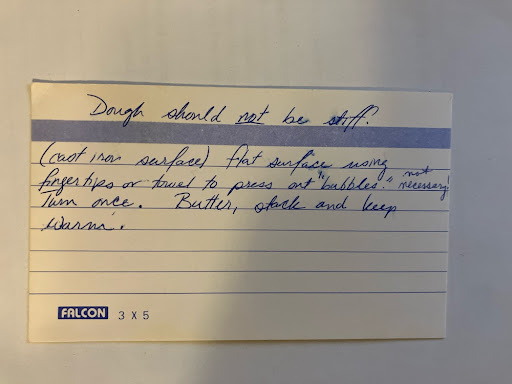 Dough should not be stiff.
(cast iron surface) flat surface using
fingertips or towel to press out "bubbles." not necessary!
Turn once. Butter, stack and keep
warm.
FALCON 3 X 5